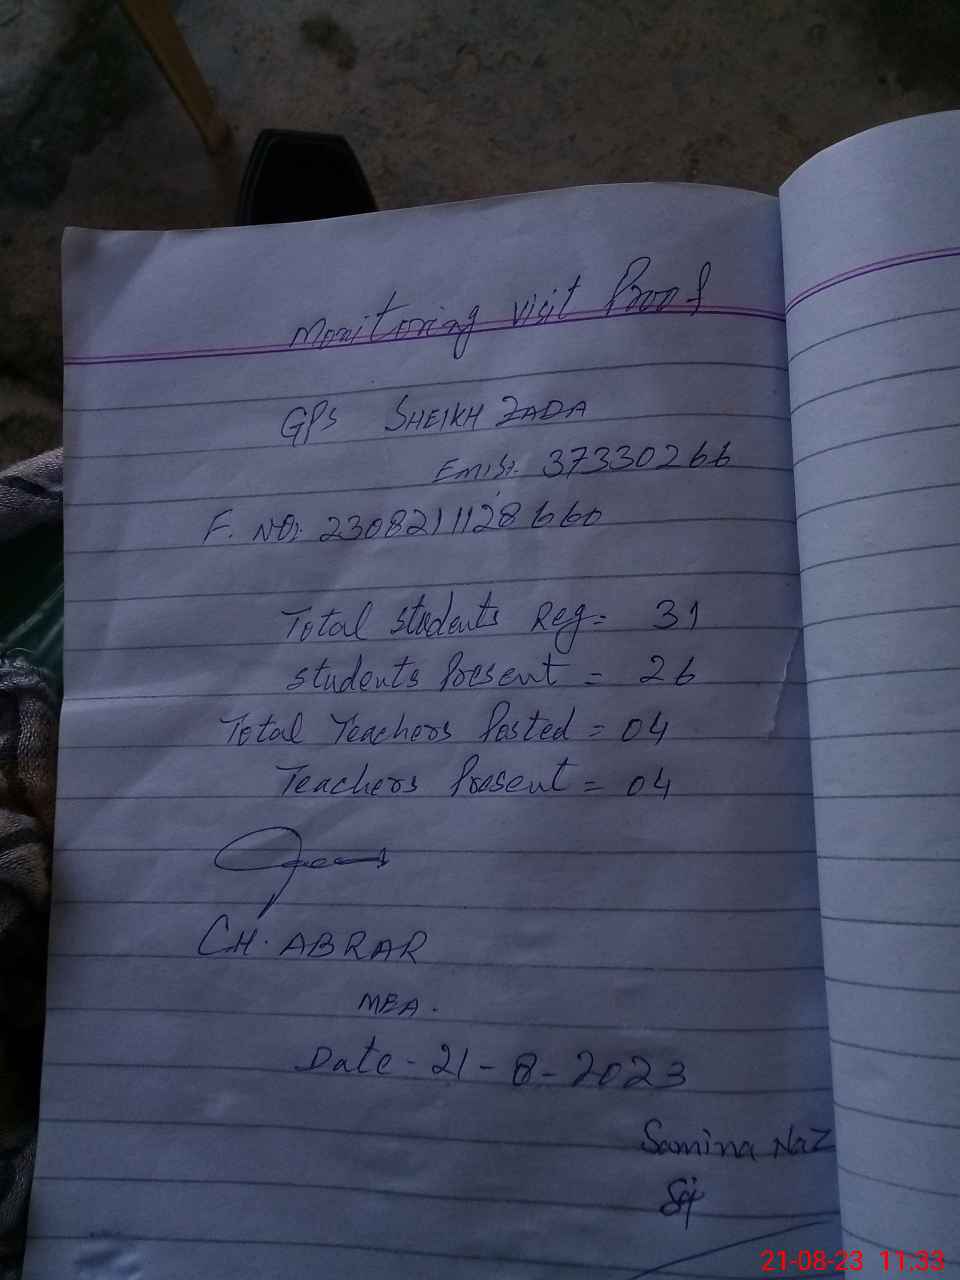 Monitoring visit Proof
GPS SHEIKH ZADA
EMIS:- 37330266
F. NO:- 2308211128660
Total students Reg = 31
students Present = 26
Total Teachers Posted = 04
Teachers Present = 04
CH. ABRAR
MEA.
Date - 21 - 8 - 2023
Samina Naz
21-08-23 11:33